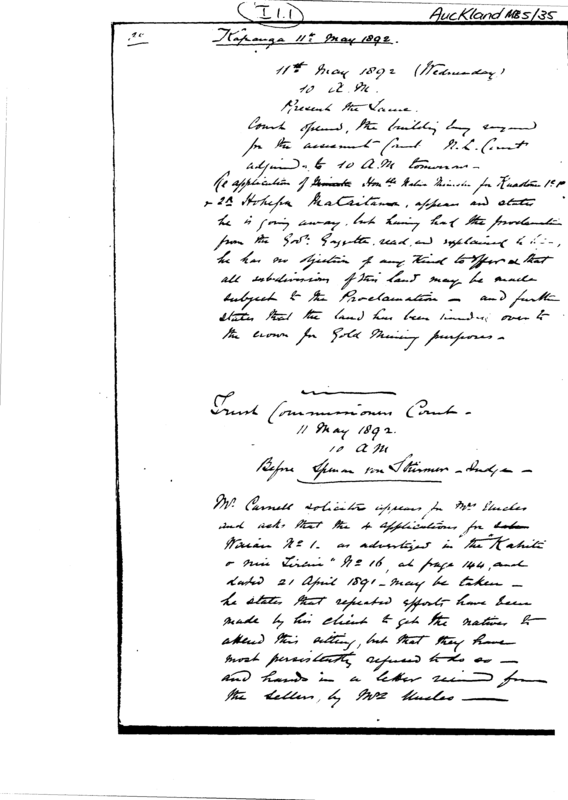 I 1.1
Auckland MB 5/35
Kapanga 11th May 1892.
11th May 1892 (Wednesday)
10 A.M.
Present the same.
Court opened, the building being required
for the assessment Court N. L. Court
adjourned to 10 A.M tomorrow -
Re application of Honble Native Minister for
+ 2A Hohepa Mataitaua, appears and states
he is going away, but having had the proclamation
from the Govt Gazette read and explained to him,
he has no objection of any kind to offer that
all subdivisions of this land may be made
subject to the Proclamation - and further
states that the land has been handed over to
the crown for Gold Mining purposes -
Trust Commissioners Court -
11 May 1892.
10 A M
Before Spencer von Sturmer - Judge -
Mr Carnell solicitor appears for Mrs
and asks that the 4 applications for
No 1 - as advertized in the Kahiti
o Niu Tireni" No 16, at page 144, and
dated 21 April 1891 - may be taken -
he states that repeated efforts have been
made by his client to get the natives to
attend this sitting, but that they have
most persistently refused to do so -
and hands in a letter received from
the sellers, by